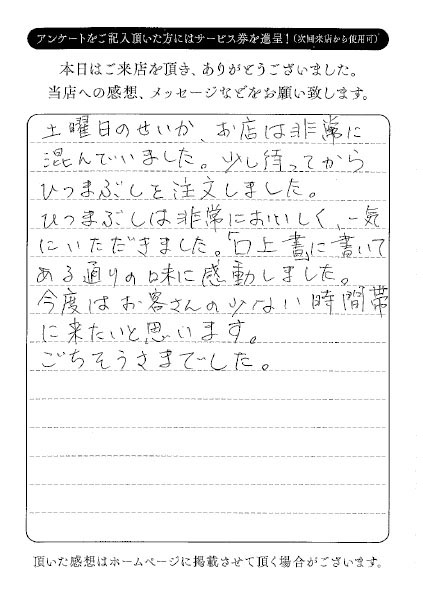 アンケートをご記入頂いた方にはサービス券を進呈！(次回来店から使用可)
本日はご来店を頂き、ありがとうございました。
当店への感想、メッセージなどをお願い致します。
土曜日のせいか、お店は非常に
混んでいました。少し待ってから
ひつまぶしを注文しました。
ひつまぶしは非常においしく、一気
にいただきました。「口上書」に書いて
ある通りの味に感動しました。
今度はお客さんの少ない時間帯
に来たいと思います。
ごちそうさまでした。
頂いた感想はホームページに掲載させて頂く場合がございます。